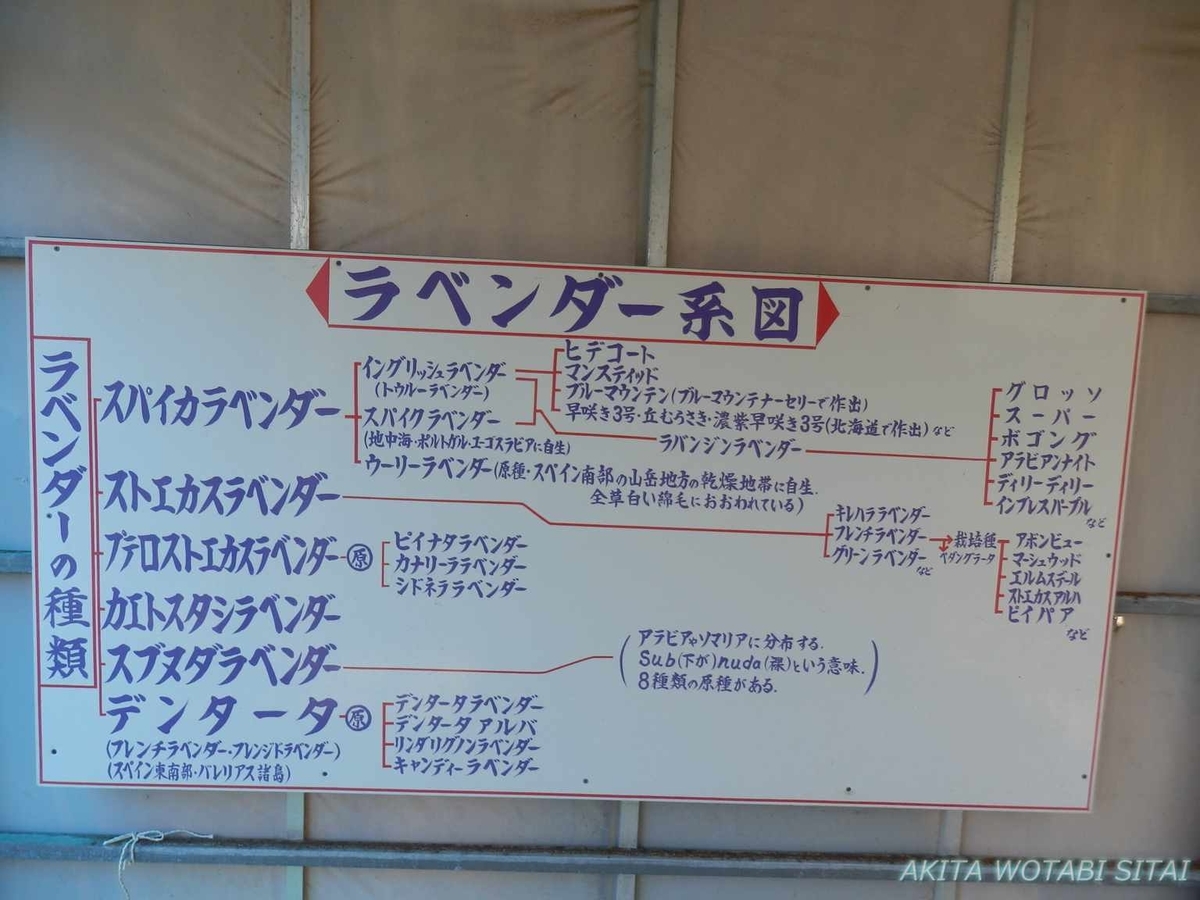 ラベンダー系図
ラベンダーの種類
スパイカラベンダー
イングリッシュラベンダー
(トゥルーラベンダー)
ヒデコート
マンスティッド
ブルーマウンテン(ブルーマウンテナーセリーで作出)
早咲き3号・丘むらさき・濃紫早咲き3号(北海道で作出)など
スパイクラベンダー
(地中海・ポルトガル・ユーゴスラビアに自生)
ラバンジンラベンダー
グロッソ
スーパー
ボゴング
アラビアンナイト
ディリーディリー
インプレスパープル
など
ウーリーラベンダー(原種・スペイン南部の山岳地方の乾燥地帯に自生.
全草白い綿毛におおわれている)
ストエカスラベンダー
キレハララベンダー
フレンチラベンダー
グリーンラベンダー
など
栽培種
ペダングラータ
アボンビュー
マーシュウッド
エルムスデール
ストエカスアルバ
ビイパア
など
プテロストエカスラベンダー原
ピイナタラベンダー
カナリーララベンダー
シドネララベンダー
カエトスタシラベンダー
スブヌダラベンダー
アラビアやソマリアに分布する.
Sub(下が)nuda(裸)という意味.
8種類の原種がある.
デンタータ原
(フレンチラベンダー・フレンジドラベンダー)
(スペイン東南部・バレリアス諸島)
デンタータラベンダー
デンタータアルバ
リンダリグノンラベンダー
キャンディーラベンダー
AKITA WOTABI SITAI